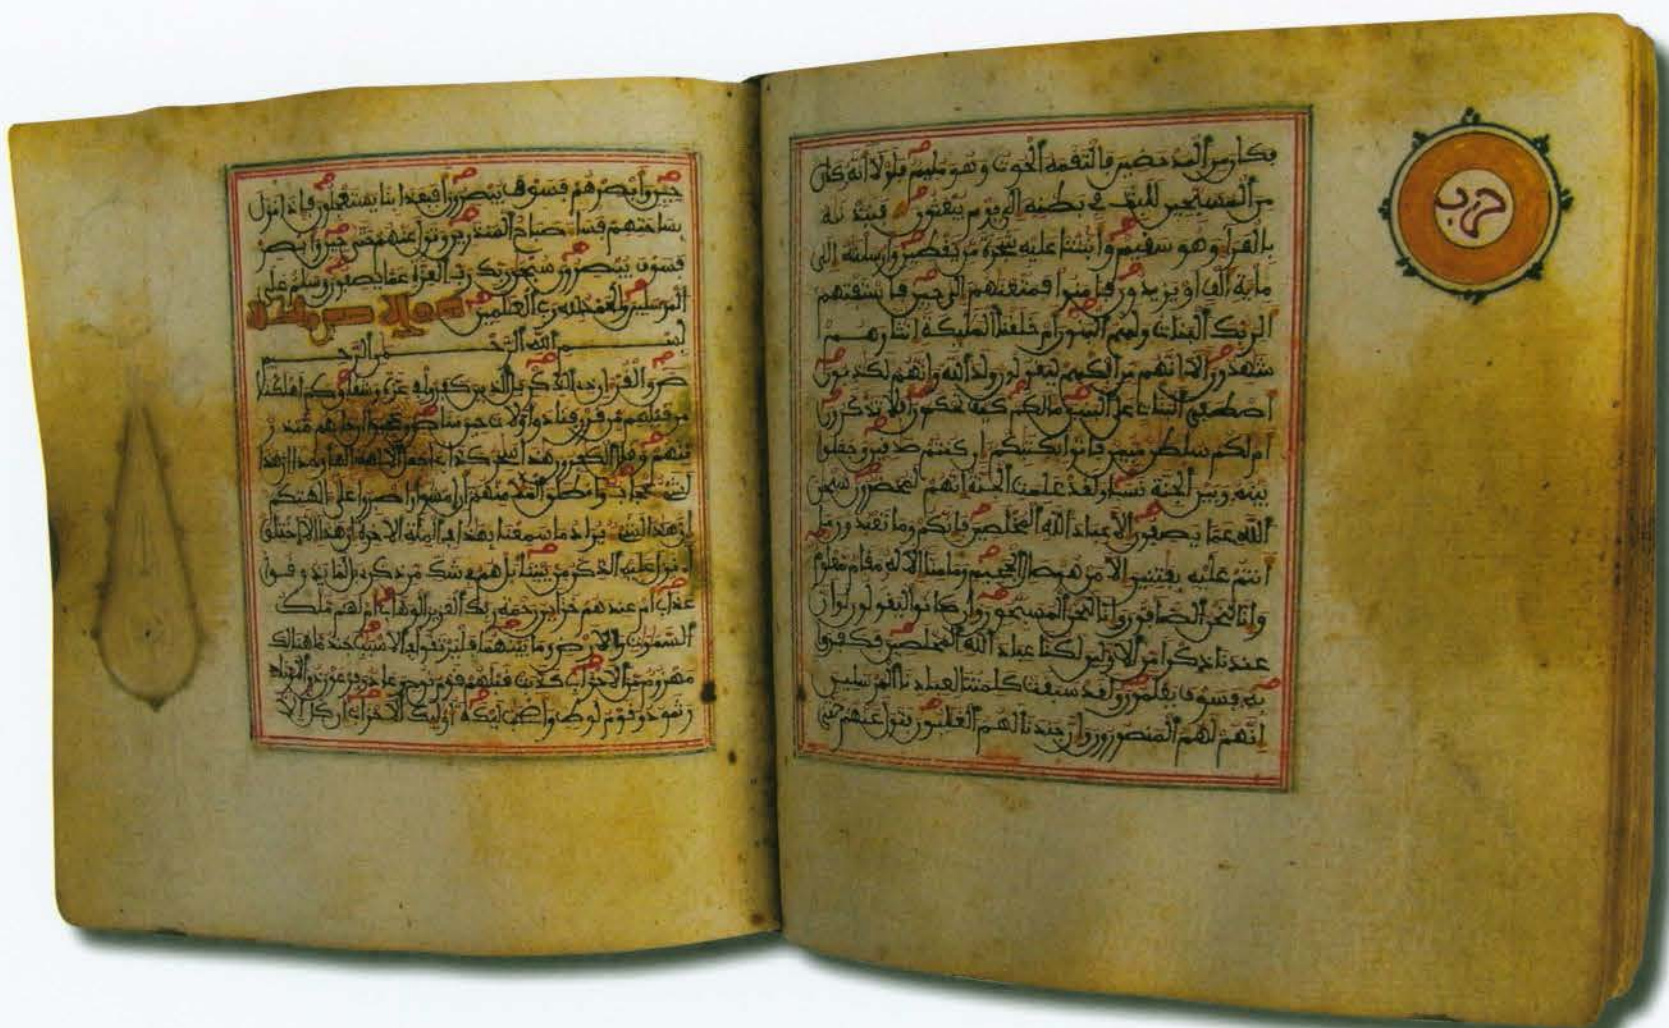 حزب
فكان من المدحضين فالتقمه الحوت وهو مليم فلولا أنه كان
من المسبحين للبث في بطنه إلى يوم يبعثون فنبذنه
بالعراء وهو سقيم وأنبتنا عليه شجرة من يقطين وأرسلنه إلى
ماية ألف أو يزيدون فـامنوا فمتعنهم إلى حين فاستفتهم
ألربك البنات ولهم البنون أم خلقنا المليكة إنثا وهم
شهدون ألا إنهم من إفكهم ليقولون ولد الله وإنهم لكذبون
أصطفى البنات على البنين مالكم كيف تحكمون أفلا تذكرون
أم لكم سلطن مبين فاتوا بكتبكم إن كنتم صدقين وجعلوا
بينه وبين الجنة نسبا ولقد علمت الجنة إنهم لمحضرون سبحن
الله عما يصفون إلا عباد الله المخلصين فإنكم وما تعبدون ما
أنتم عليه بفتنين إلا من هو صال الجحيم وما منا إلا له مقام معلوم
وإنا لنحن الصافون وإنا لنحن المسبحون وإن كانوا ليقولون لو أن
عندنا ذكرا من الأولين لكنا عباد الله المخلصين فكفروا
به فسوف يعلمون ولقد سبقت كلمتنا لعبادنا المرسلين
إنهم لهم المنصورون وإن جندنا لهم الغلبون فتول عنهم حتى
حين وأبصرهم فسوف يبصرون أفبعذابنا يستعجلون فإذا نزل
بساحتهم فساء صباح المنذرين وتول عنهم حتى حين وأبصر
فسوف يبصرون سبحن ربك رب العزة عما يصفون وسلم على
المرسلين والحمد لله رب العلمين
بسم الله الرحمن الرحيم
ص والقرءان ذي الذكر بل الذين كفروا في عزة وشقاق كم أهلكنا
من قبلهم من قرن فنادوا ولات حين مناص وعجبوا أن جاءهم منذر
منهم وقال الكفرون هذا سحر كذاب أجعل الالهة إلها وحدا إن هذا
لشيء عجاب وانطلق الملأ منهم أن امشوا واصبروا على ءالهتكم
إن هذا لشيء يراد ما سمعنا بهذا في الملة الاخرة إن هذا إلا اختلق
أءنزل عليه الذكر من بيننا بل هم في شك من ذكري بل لما يذوقوا
عذاب أم عندهم خزاين رحمة ربك العزيز الوهاب أم لهم ملك
السموت والارض وما بينهما فليرتقوا في الاسبب جند ما هنالك
مهزوم من الاحزاب كذبت قبلهم قوم نوح وعاد وفرعون ذو الاوتاد
وثمود وقوم لوط وأصحب ليكة أوليك الاحزاب إن كل إلا